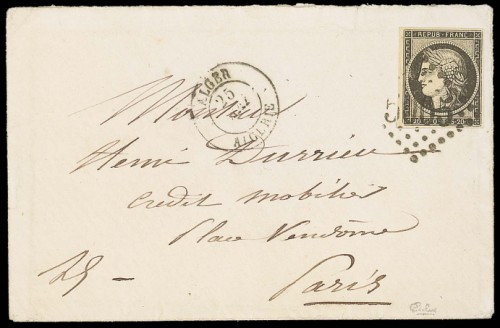 REPUB. FRANC.
ALGER
25
ALGERIE
Monsieur
Henri Durrieu
Credit mobilier
Place Vendôme
25 —
Paris